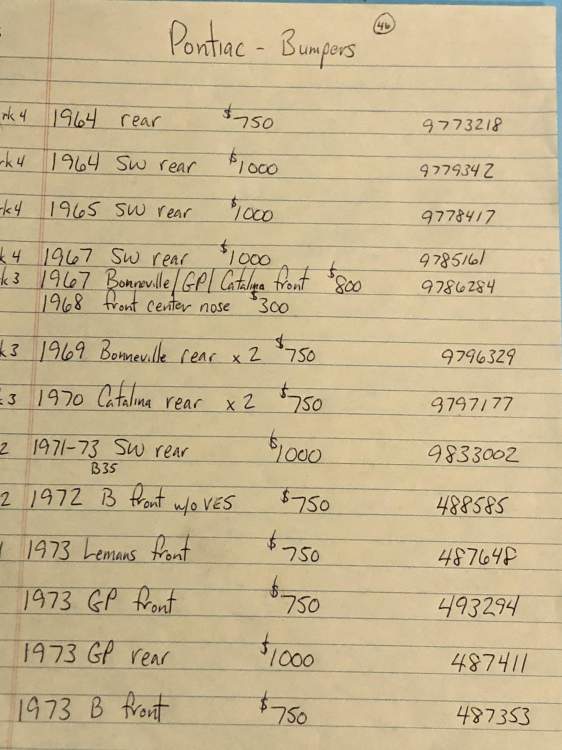 46
Pontiac - Bumpers
rk 4 1964 rear $750 9773218
rk 4 1964 SW rear $1000 9779342
rk 4 1965 SW rear $1000 9778417
k 4 1967 SW rear $1000 9785161
k 3 1967 Bonneville/GP/Catalina front $800 9786284
1968 front center nose $300
k 3 1969 Bonneville rear x 2 $750 9796329
k 3 1970 Catalina rear x 2 $750 9797177
2 1971-73 SW rear $1000 9833002
B35
2 1972 B front w/o VES $750 488585
1 1973 Lemans front $750 487648
1973 GP front $750 493294
1973 GP rear $1000 487411
1973 B front $750 487353